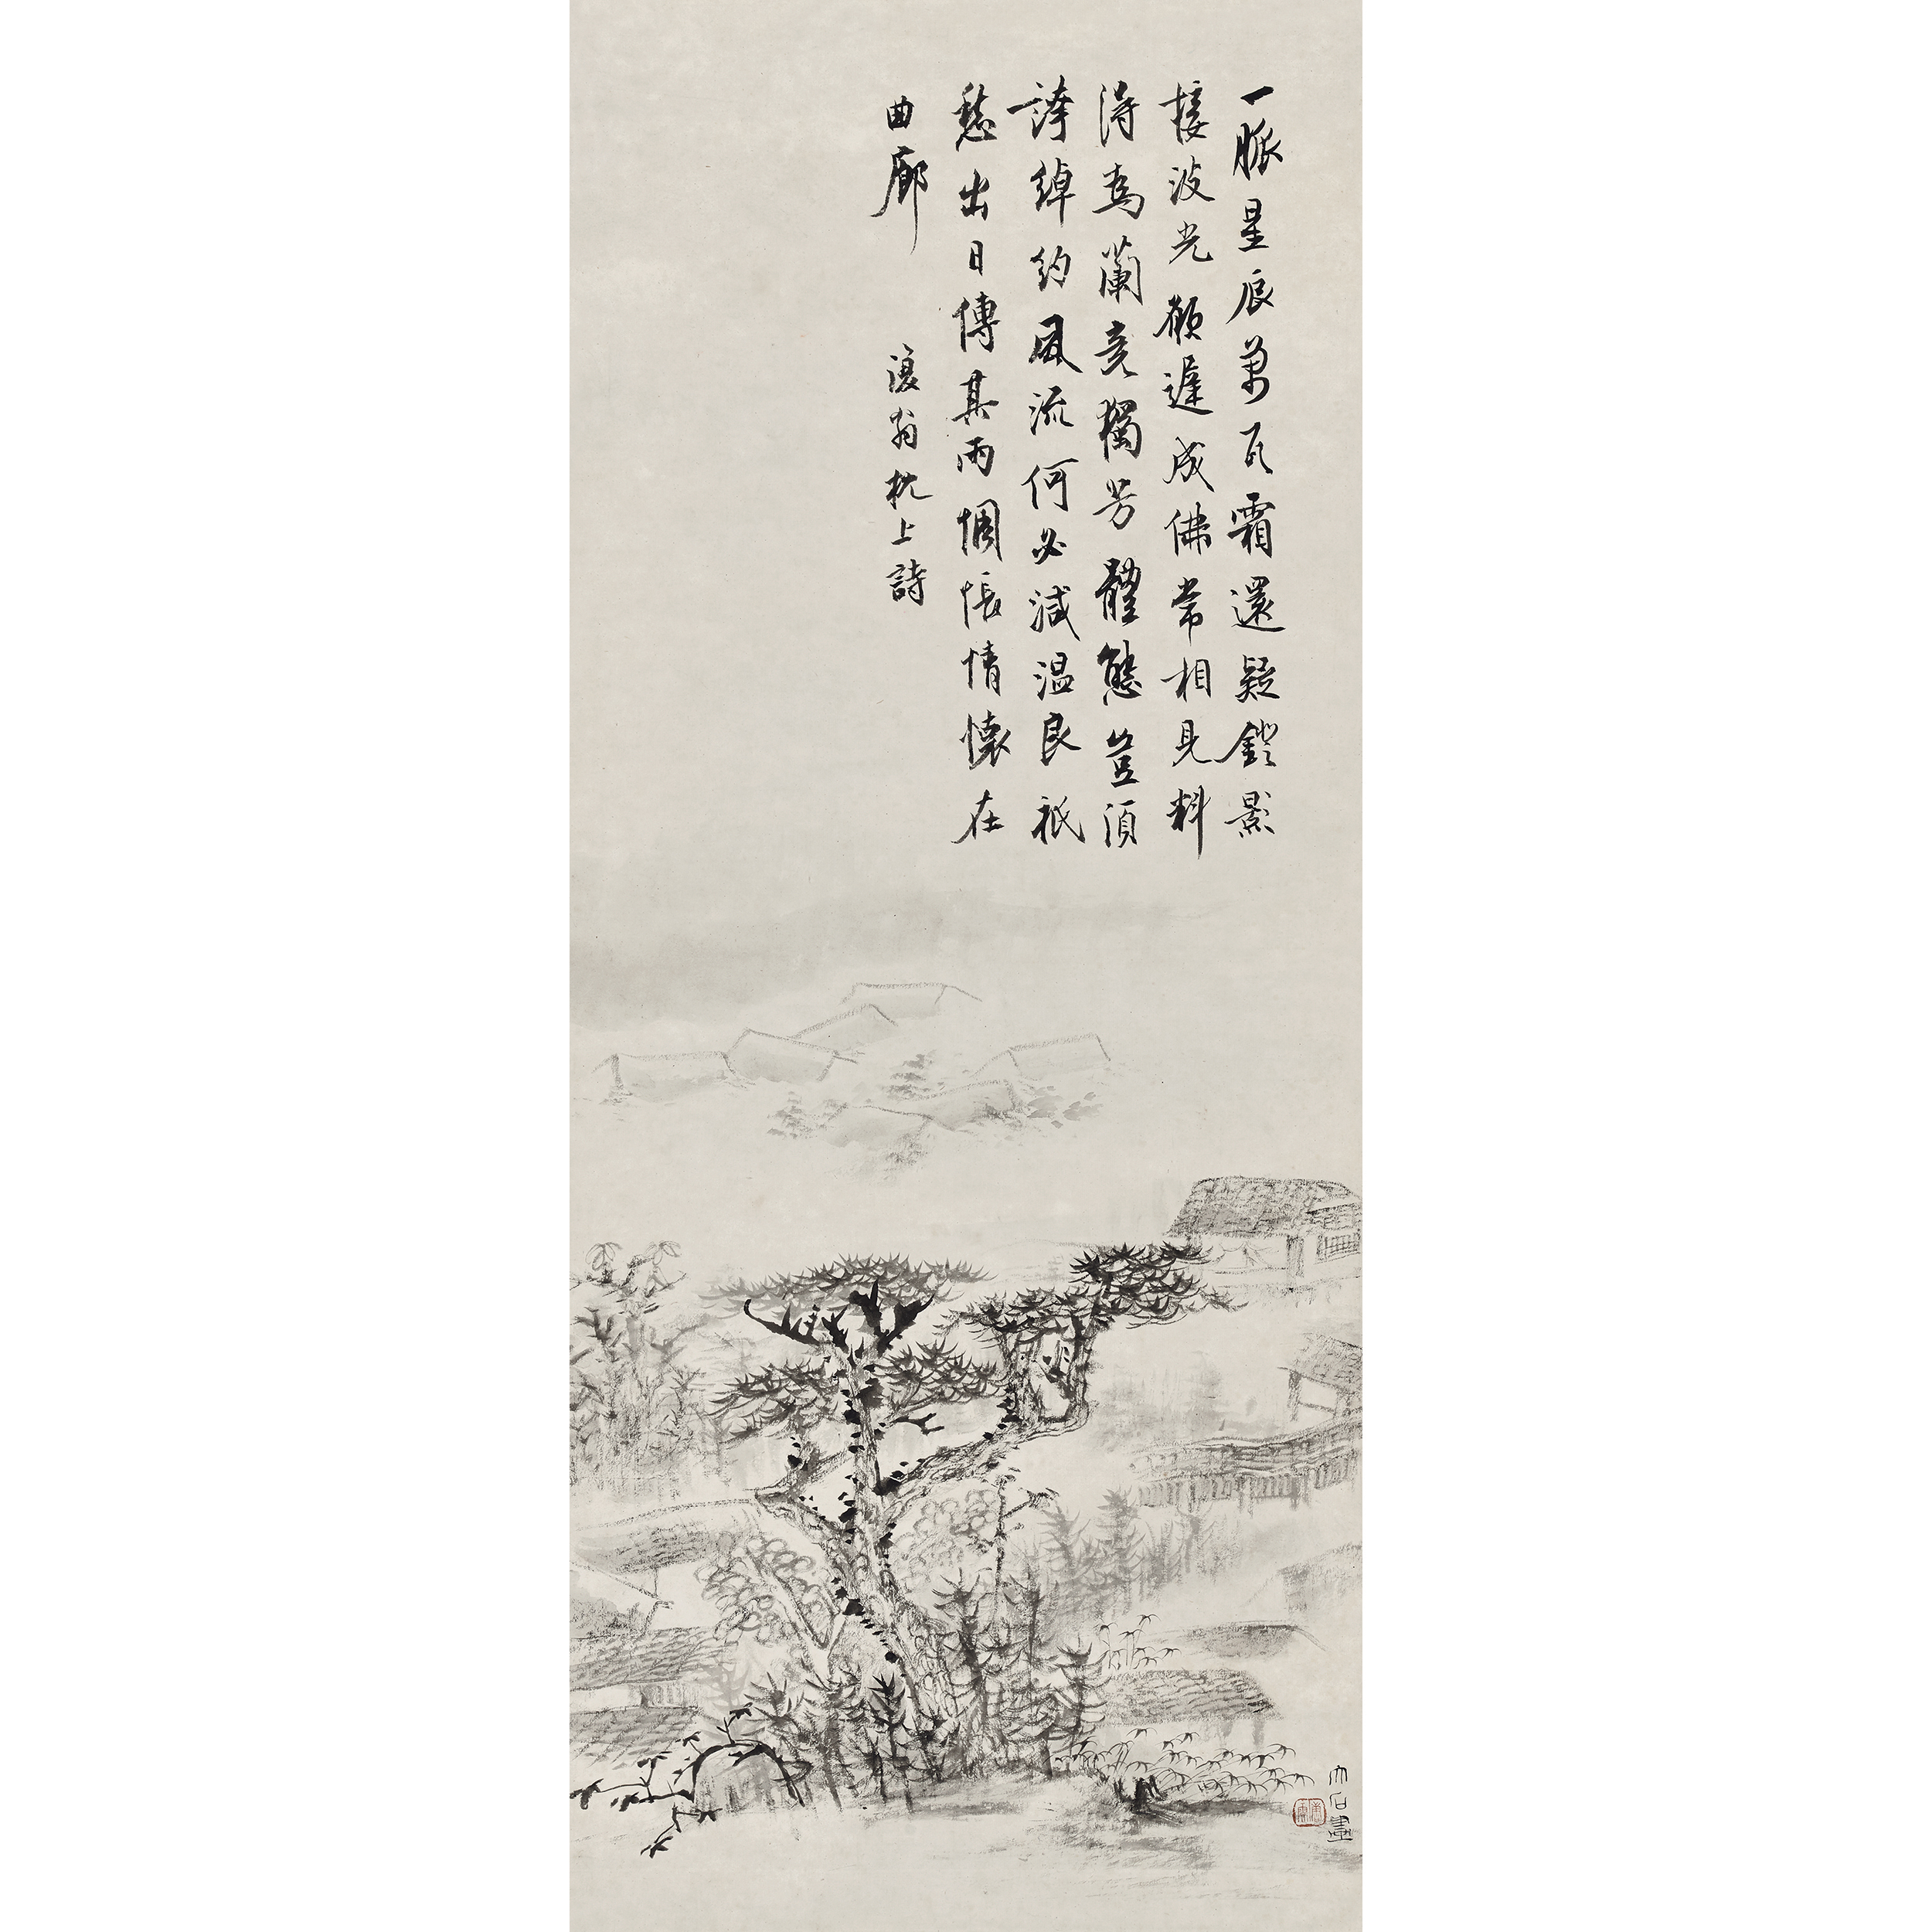 一脈星辰萬瓦霜還疑鐙影
接波光願遲成佛常相見料
得為蘭竟獨芳體態豈須
誇綽約風流何必減温良祇
愁出日傳其雨惆悵情懷在
曲廊 翁枕上詩
大石畫